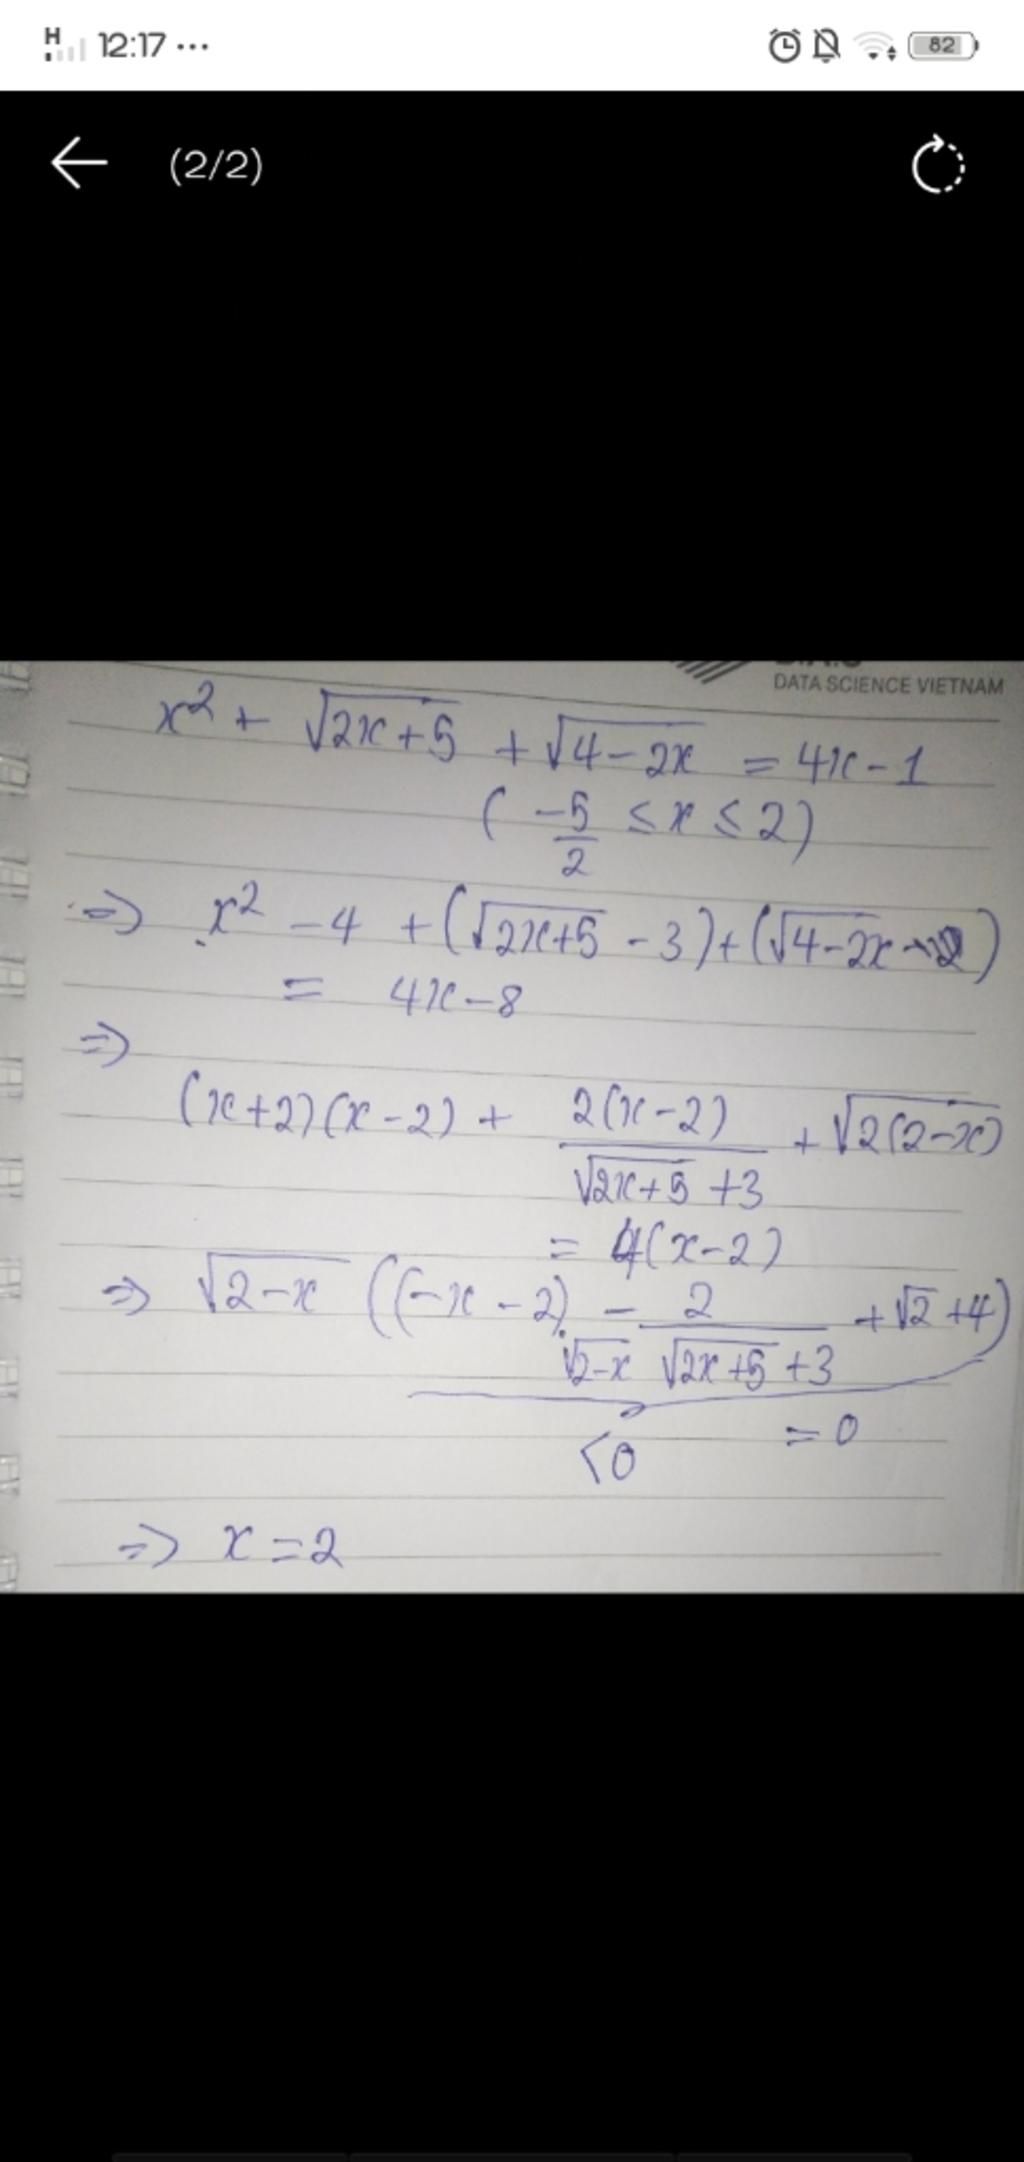 H 12:17 ... 82
(2/2)
DATA SCIENCE VIETNAM
x² + √(2x+5) + √(4-2x) = 4x-1
(-5/2 ≤ x ≤ 2)
=> x² - 4 + (√(2x+5) - 3) + (√(4-2x)
= 4x-8
=>
(x+2)(x-2) + 2(x-2)/(√(2x+5) +3) + √(2(2-x))
= 4(x-2)
=> √(2-x) ((-x-2)√(2-x) - 2/(√(2x+5) +3) + √2 +4)
<0 =0
=> x=2